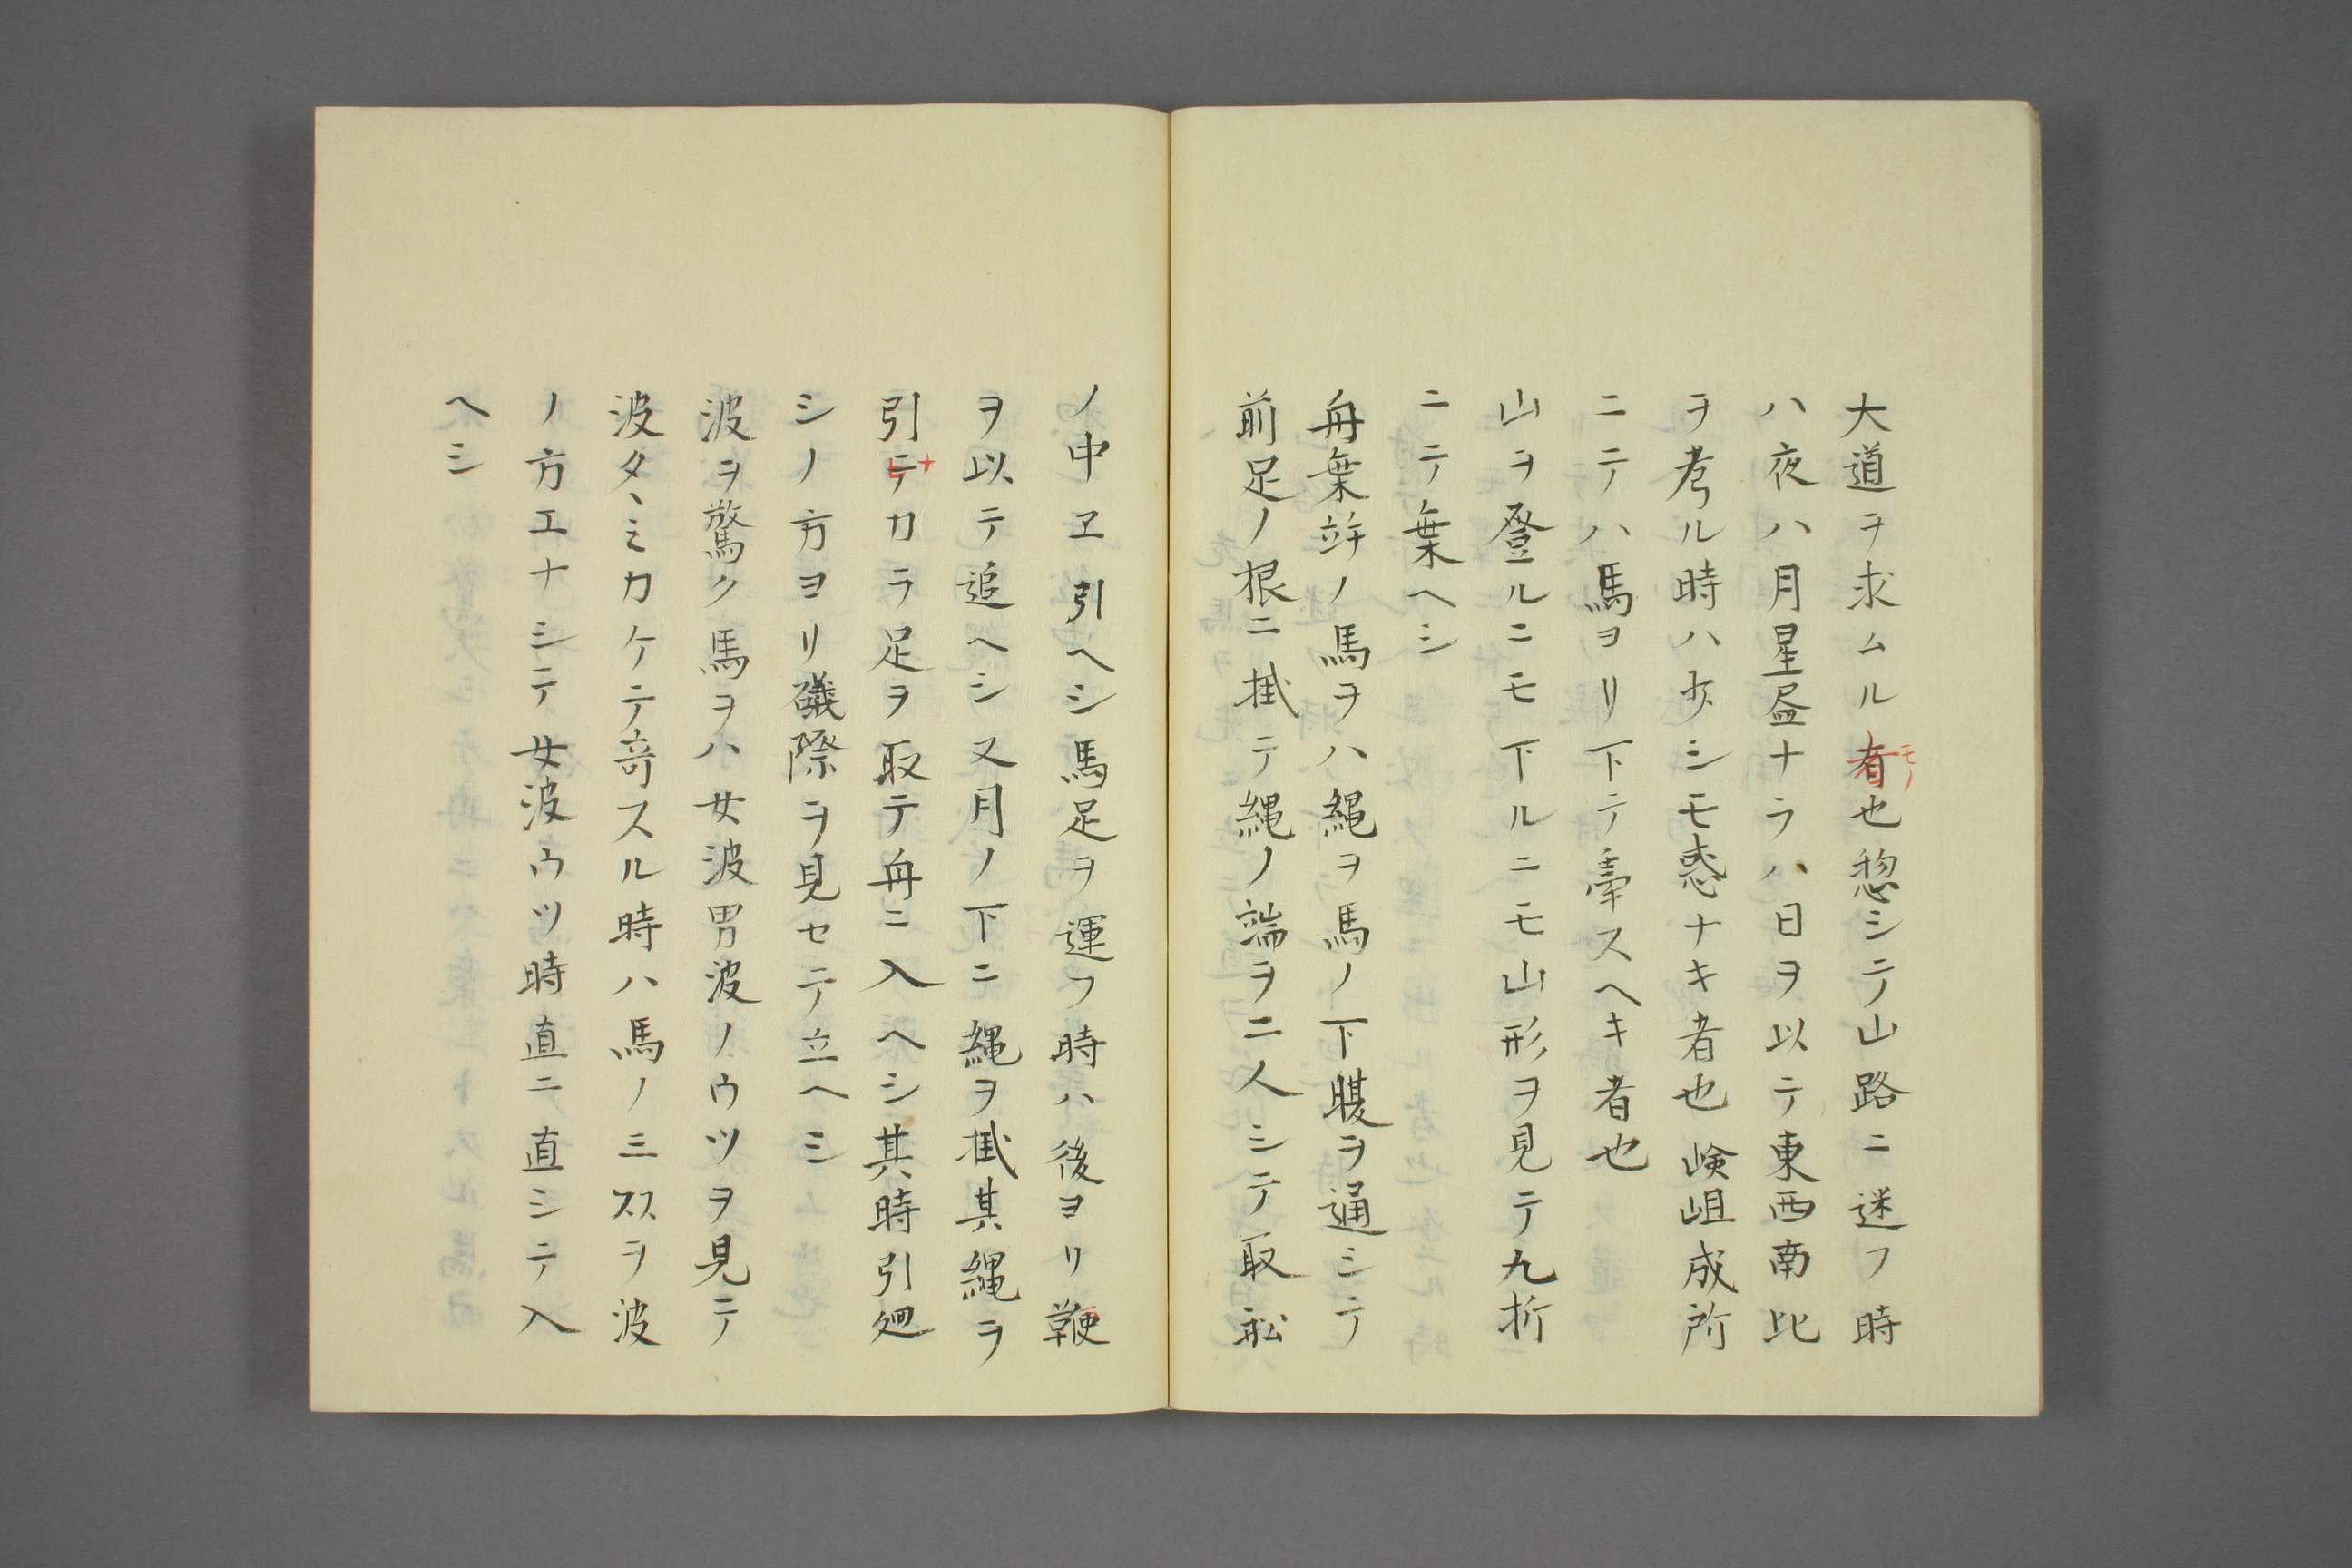 大道ヲ求ムル者也惣シテ山路ニ迷フ時
モノ
ハ夜ハ月星昼ナラハ日ヲ以テ東西南北
ヲ考ル時ハ少シモ惑ナキ者也嶮岨成所
ニテハ馬ヨリ下テ牽スヘキ者也
山ヲ登ルニモ下ルニモ山形ヲ見テ九折
ニテ乗ヘシ
舟乗並ノ馬ヲハ縄ヲ馬ノ下腹ヲ通シテ
前足ノ根ニ掛テ縄ノ端ヲ二人シテ取舩
ノ中ヱ引ヘシ馬足ヲ運フ時ハ後ヨリ鞭
ヲ以テ追ヘシ又月ノ下ニ縄ヲ掛其縄ヲ
引テカラ足ヲ取テ舟ニ入ヘシ其時引廻
ナ
シノ方ヨリ礒際ヲ見セテ立ヘシ
波ヲ驚ク馬ヲハ女波男波ノウツヲ見テ
波タヽミカケテ寄スル時ハ馬ノ三ススヲ波
ノ方エナシテ女波ウツ時直ニ直シテ入
ヘシ